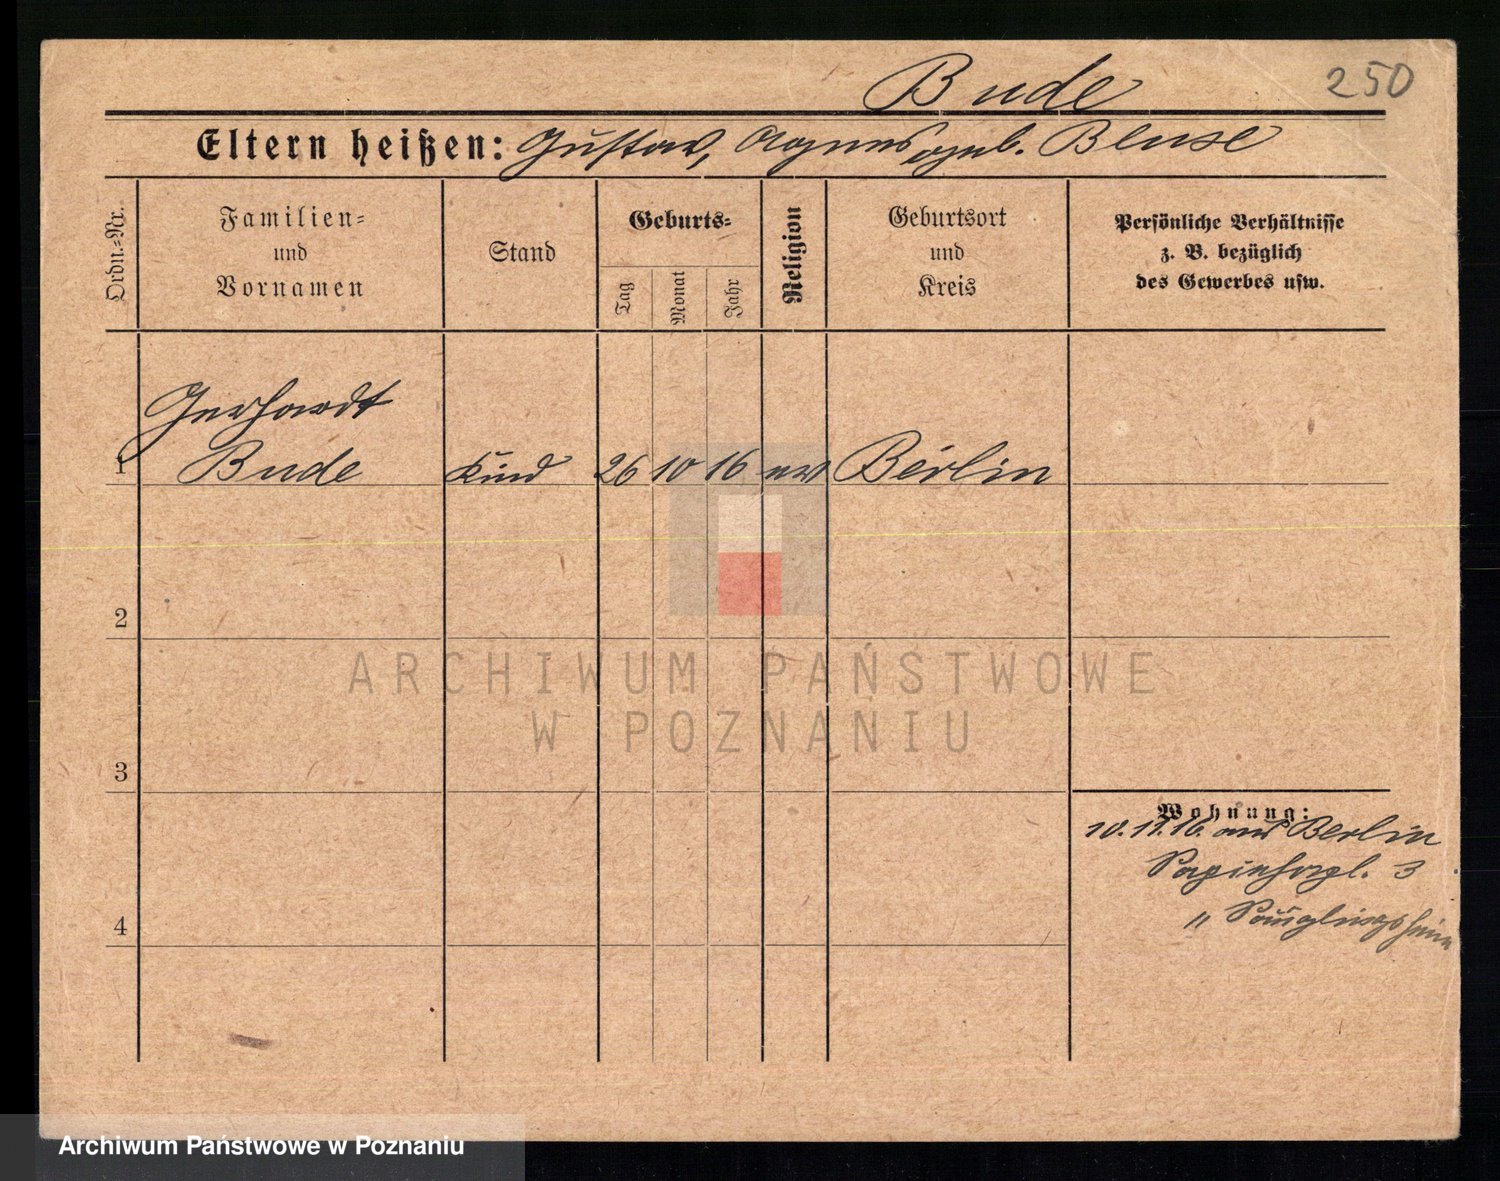 Bude 250
Eltern heißen: Gustav, Agnes geb. Bluse
Ordn.-Nr. Familien- und Vornamen Stand Geburts- Tag Monat Jahr Religion Geburtsort und Kreis Persönliche Verhältnisse z. B. bezüglich des Gewerbes usw.
Gerhardt
1 Bude Kind 26 10 16 ev Berlin
2
3
Wohnung:
10.11.16. aus Berlin
3
4 " Säuglingsheim
ARCHIWUM PAŃSTWOWE
W POZNANIU
Archiwum Państwowe w Poznaniu